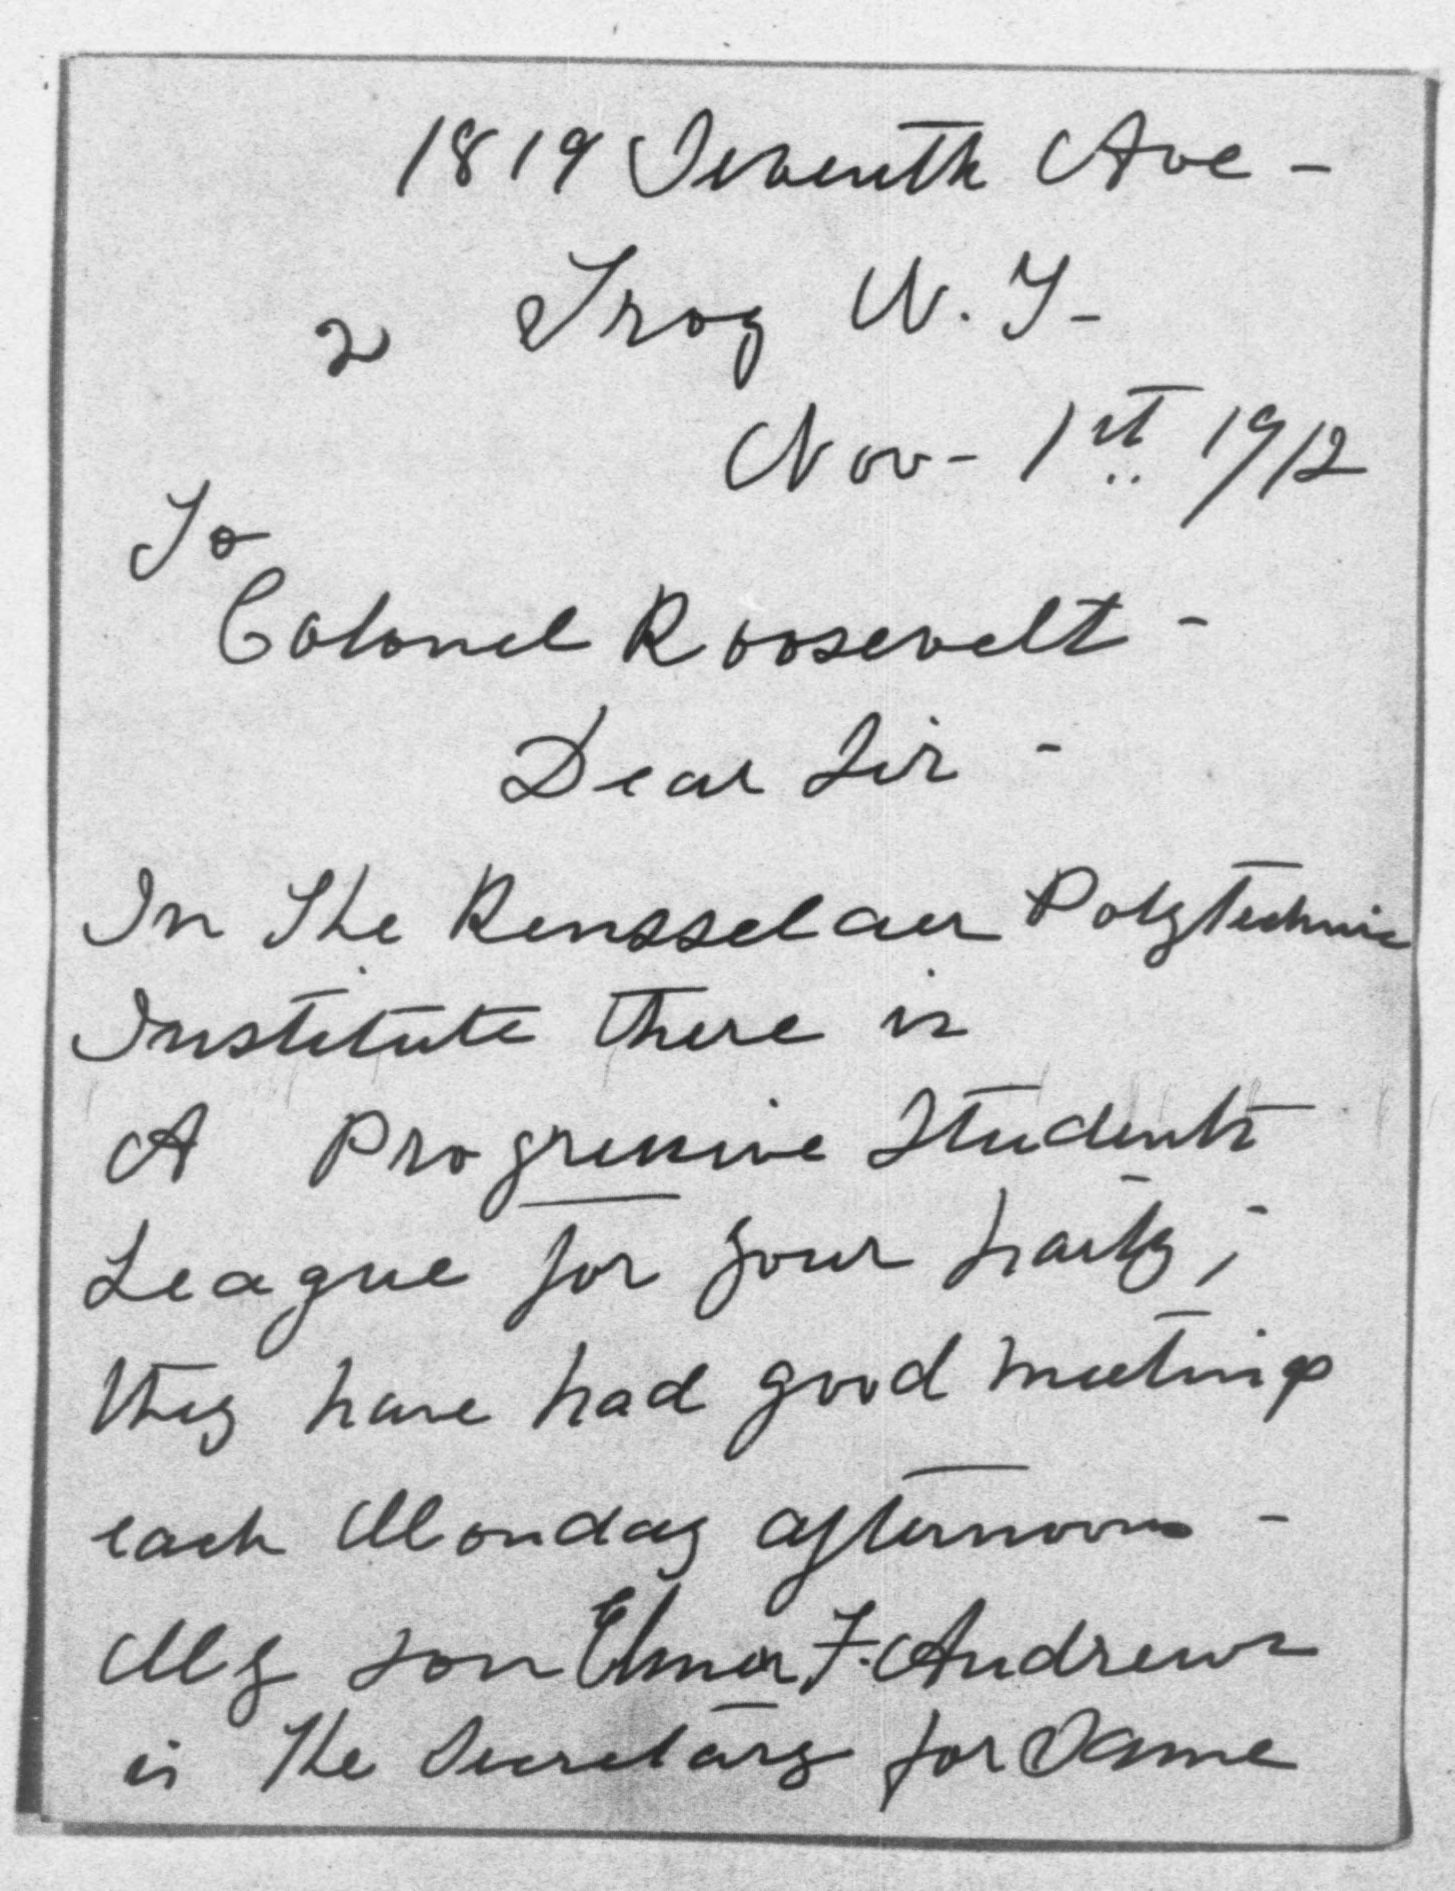 1819 Seventh Ave -
2 Troy N. Y -
Nov - 1st 1912
To
Colonel Roosevelt -
Dear Sir -
In The Rensselaer Polytechnic
Institute there is
A Progressive Students
League for your party ;
they have had good meetings
each Monday afternoon -
My son Elmer F. Andrews
is The Secretary for Same